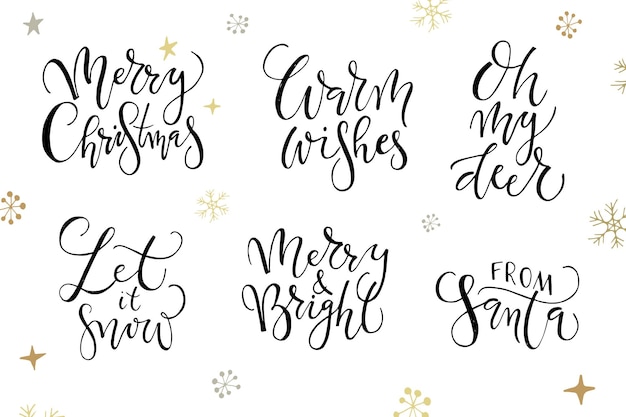 Merry
Christmas
Warm
wishes
Oh
my
deer
Let
it
Snow
Merry
&
Bright
FROM
Santa